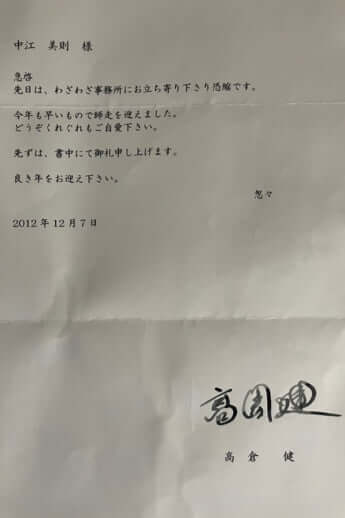 中江 美則 様
急啓
先日は、わざわざ事務所にお立ち寄り下さり恐縮です。
今年も早いもので師走を迎えました。
どうぞくれぐれもご自愛下さい。
先ずは、書中にて御礼申し上げます。
良き年をお迎え下さい。
怱々
2012年12月7日
高倉 健